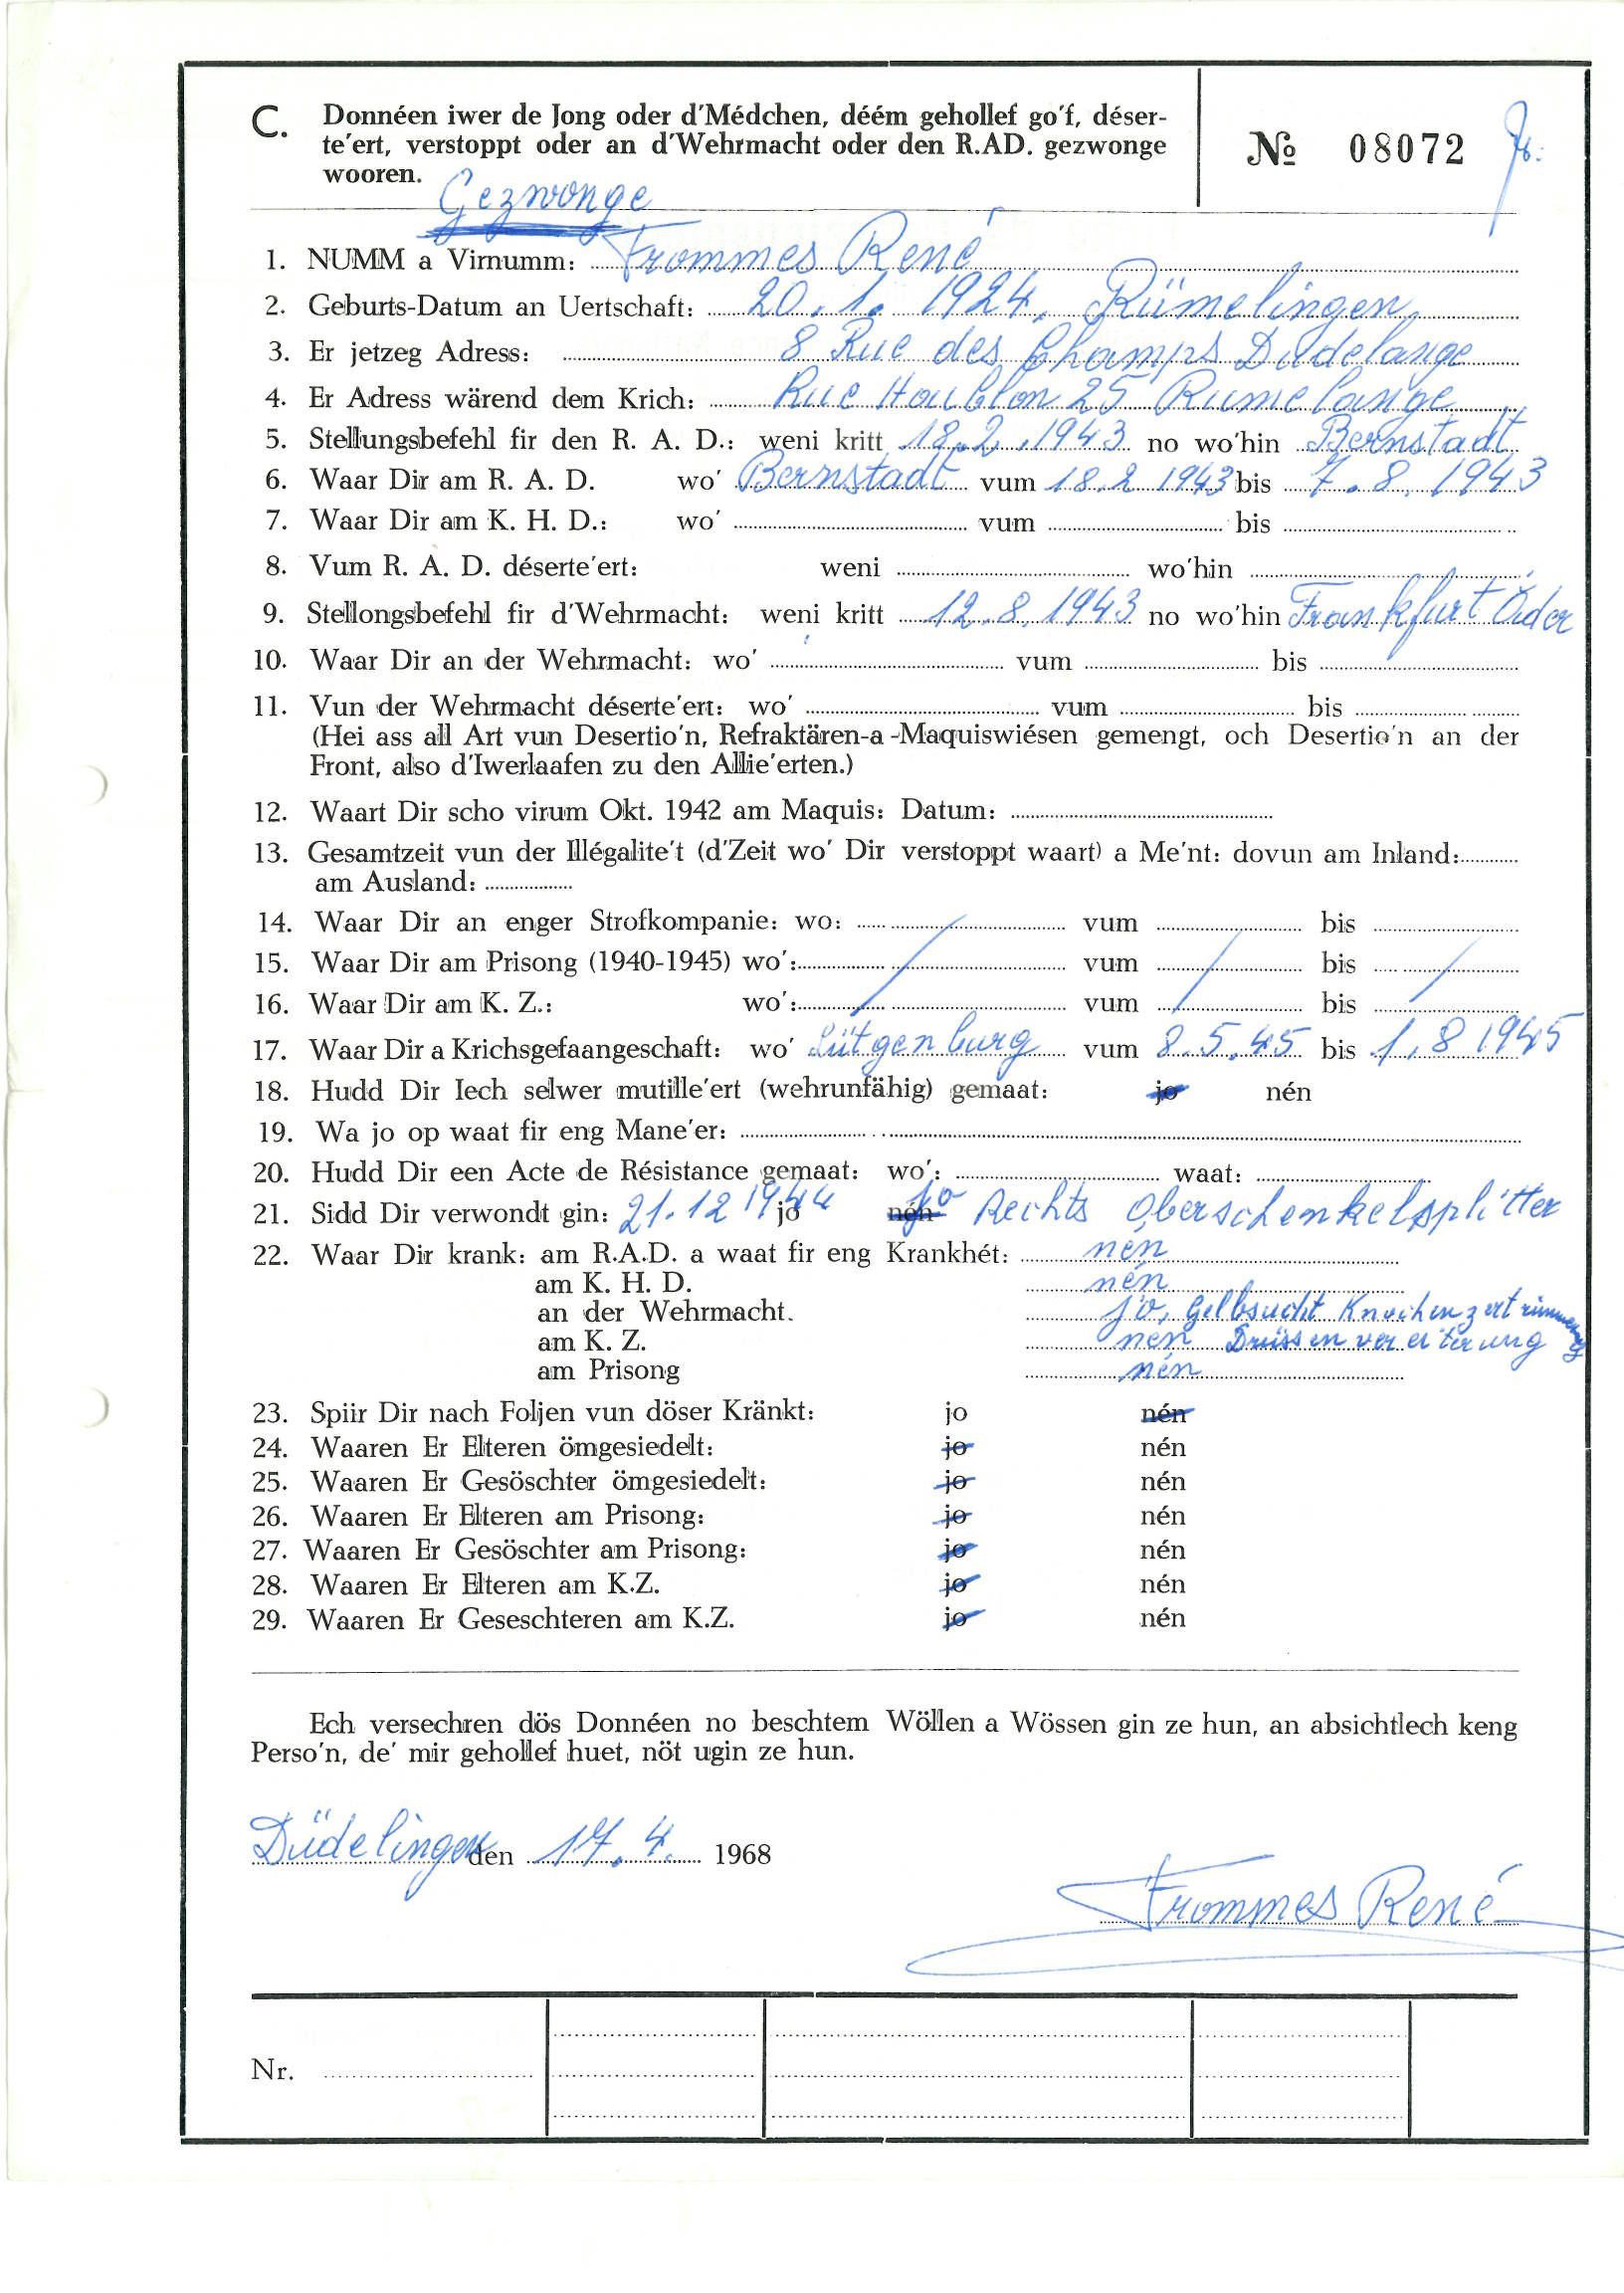 C. Donnéen iwer de Jong oder d'Médchen, déém gehollef go'f, déser-
te'ert, verstoppt oder an d'Wehrmacht oder den R.AD. gezwonge
wooren.
№ 08072
Gezwonge
1. NUMM a Virnumm: Frommes René
2. Geburts-Datum an Uertschaft: 20.1.1924, Rümelingen
3. Er jetzeg Adress: 8 Rue des Champs Dudelange
4. Er Adress wärend dem Krich: Rue Houblon 25 Rumelange
5. Stellungsbefehl fir den R. A. D.: weni kritt 18.2.1943 no wo'hin Bernstadt
6. Waar Dir am R. A. D. wo' Bernstadt vum 18.2 1943 bis 7.8.1943
7. Waar Dir am K. H. D.: wo' vum bis
8. Vum R. A. D. déserte'ert: weni wo'hin
9. Stellongsbefehl fir d'Wehrmacht: weni kritt 12.8.1943 no wo'hin Frankfurt Oder
10. Waar Dir an der Wehrmacht: wo' vum bis
11. Vun der Wehrmacht déserte'ert: wo' vum bis
(Hei ass all Art vun Desertio'n, Refraktären-a-Maquiswiésen gemengt, och Desertio'n an der
Front, also d'Iwerlaafen zu den Allie'erten.)
12. Waart Dir scho virum Okt. 1942 am Maquis: Datum:
13. Gesamtzeit vun der Illégalite't (d'Zeit wo' Dir verstoppt waart) a Me'nt: dovun am Inland:
am Ausland:
14. Waar Dir an enger Strofkompanie: wo: vum bis
15. Waar Dir am Prisong (1940-1945) wo': vum bis
16. Waar Dir am K. Z.: wo': vum bis
17. Waar Dir a Krichsgefaangeschaft: wo' Lütgenburg vum 8.5.45 bis 1.8 1945
18. Hudd Dir Iech selwer mutille'ert (wehrunfähig) gemaat: jo nén
19. Wa jo op waat fir eng Mane'er:
20. Hudd Dir een Acte de Résistance gemaat: wo': waat:
21. Sidd Dir verwondt gin: 21.12 1944 jo nén jo Rechts Oberschenkelsplitter
22. Waar Dir krank: am R.A.D. a waat fir eng Krankhét: nén
am K. H. D. nén
an der Wehrmacht. jo, Gelbsucht Knochenzertrümmerung
am K. Z. nén Drüssenvereiterung
am Prisong nén
23. Spiir Dir nach Foljen vun döser Kränkt: jo nén
24. Waaren Er Elteren ömgesiedelt: jo nén
25. Waaren Er Gesöschter ömgesiedelt: jo nén
26. Waaren Er Elteren am Prisong: jo nén
27. Waaren Er Gesöschter am Prisong: jo nén
28. Waaren Er Elteren am K.Z. jo nén
29. Waaren Er Geseschteren am K.Z. jo nén
Ech versechren dös Donnéen no beschtem Wöllen a Wössen gin ze hun, an absichtlech keng
Perso'n, de' mir gehollef huet, nöt ugin ze hun.
Düdelingen den 17.4. 1968
Frommes René
Nr.